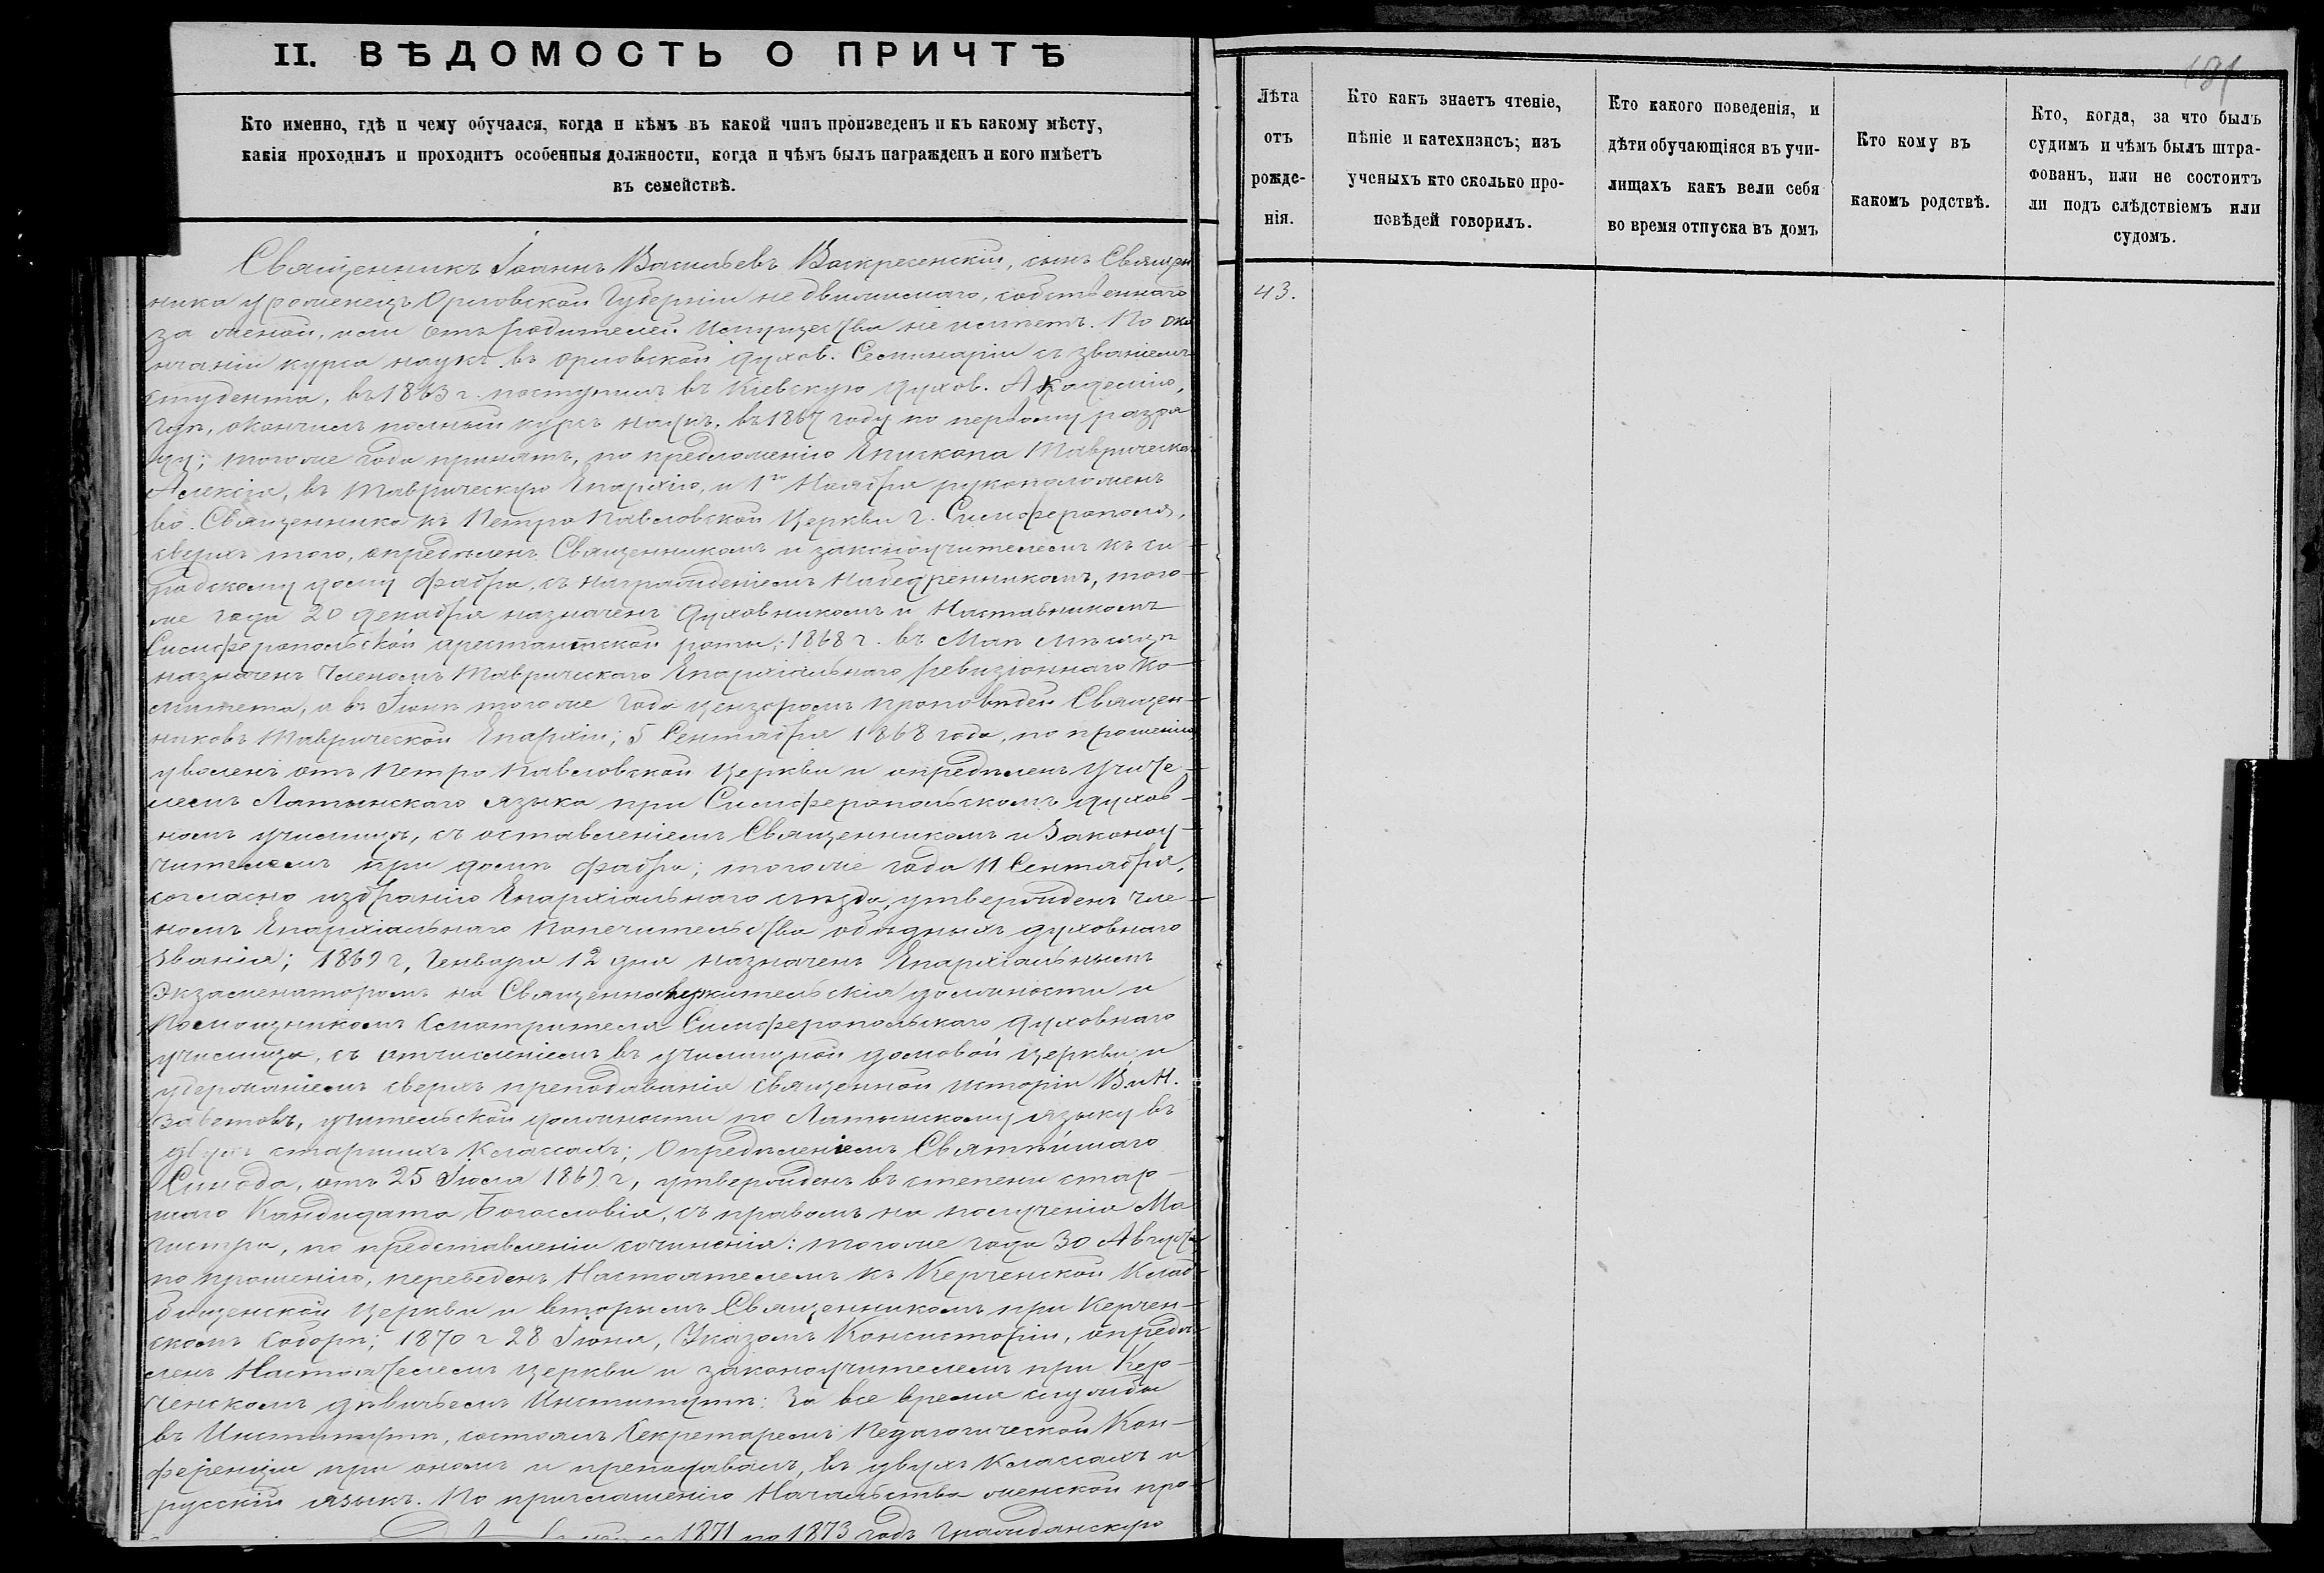 II. ВѢДОМОСТЬ О ПРИЧТѢ
Кто именно, гдѣ и чему обучался, когда и кѣмъ въ какой чинъ произведенъ и къ какому мѣсту,
какія проходилъ и проходитъ особенныя должности, когда и чѣмъ былъ награжденъ и кого имѣетъ
въ семействѣ.
Священникъ Іоаннъ Васильевъ Воскресенскій, сынъ Священ
ника уроженецъ Орловской Губерніи недвижимаго, собственнаго
за женой, или отъ родителей имущества не имѣетъ. По око
нчаніи курса наукъ въ Орловской Духов. Семинаріи съ званіемъ
студента, въ 1863 г. поступилъ въ Кіевскую Духов. Академію,
гдѣ, окончилъ полный курсъ наукъ, въ 1867 году по первому разря
ду; того же года принятъ, по предложенію Епископа Таврическаго
Алексія, въ Таврическую Епархію, и 1го Ноября рукоположенъ
во Священника къ Петро Павловской Церкви г. Симферополя,
сверхъ того, опредѣленъ Священникомъ и законоучителемъ къ си
ротскому дому Фабра, съ награжденіемъ Набедренникомъ, того-
же года 20 Декабря назначенъ Духовникомъ и Наставникомъ
Симферопольской арестантской роты; 1868 г. въ Маѣ мѣсяцѣ
назначенъ Членомъ Таврическаго Епархіальнаго ревизіоннаго Ко-
митета, и въ Іюнѣ того же года цензоромъ проповѣдей Священ-
никовъ Таврической Епархіи; 5 Сентября 1868 года, по прошенію
уволенъ отъ Петро Павловской Церкви и опредѣленъ учите-
лемъ Латынскаго языка при Симферопольскомъ духов-
номъ училищѣ, съ оставленіемъ Священникомъ и Законоу-
чителемъ при домѣ Фабра; того же года 11 Сентября,
согласно избранію Епархіальнаго съѣзда, утвержденъ Чле-
номъ Епархіальнаго Попечительства о бѣдныхъ духовнаго
званія; 1869 г, Генваря 12 дня назначенъ Епархіальнымъ
Экзаменаторомъ на Священнослужительскія должности и
Помощникомъ Смотрителя Симферопольскаго Духовнаго
училища, съ отчисленіемъ къ училищной домовой церкви и
удержаніемъ сверхъ преподаванія Священной исторіи В. и Н.
Завѣтовъ, учительской должности по Латынскому языку въ
двухъ старшихъ Классахъ; Опредѣленіемъ Святѣйшаго
Синода, отъ 25 Іюля 1869 г, утвержденъ въ степени стар-
шаго Кандидата Богословія, съ правомъ на полученія Ма
гистра, по представленіи сочиненія: того же года 30 Августа,
по прошенію, переведенъ Настоятелемъ къ Керченской Клад-
бищенской Церкви и вторымъ Священникомъ при Керчен-
скомъ Соборѣ; 1870 г 28 Іюня, Указомъ Консисторіи, опредѣ-
ленъ Настоятелемъ церкви и законоучителемъ при Кер-
ченскомъ дѣвичьемъ Институтѣ: За все время службы
въ Институтѣ, состоялъ Секретаремъ Педагогической Кон-
ференціи при ономъ и преподавалъ, въ двухъ Классахъ и
русскій языкъ. По приглашенію Начальства женской про-
1871 по 1873 годъ Гражданскую
Лѣта
отъ
рожде-
нія.
43.
Кто какъ знаетъ чтеніе,
пѣніе и катехизисъ; изъ
ученыхъ кто сколько про-
повѣдей говорилъ.
Кто какого поведенія, и
дѣти обучающіяся въ учи-
лищахъ какъ вели себя
во время отпуска въ домъ
Кто кому въ
какомъ родствѣ.
Кто, когда, за что былъ
судимъ и чѣмъ былъ штра-
фованъ, или не состоитъ
ли подъ слѣдствіемъ или
судомъ.